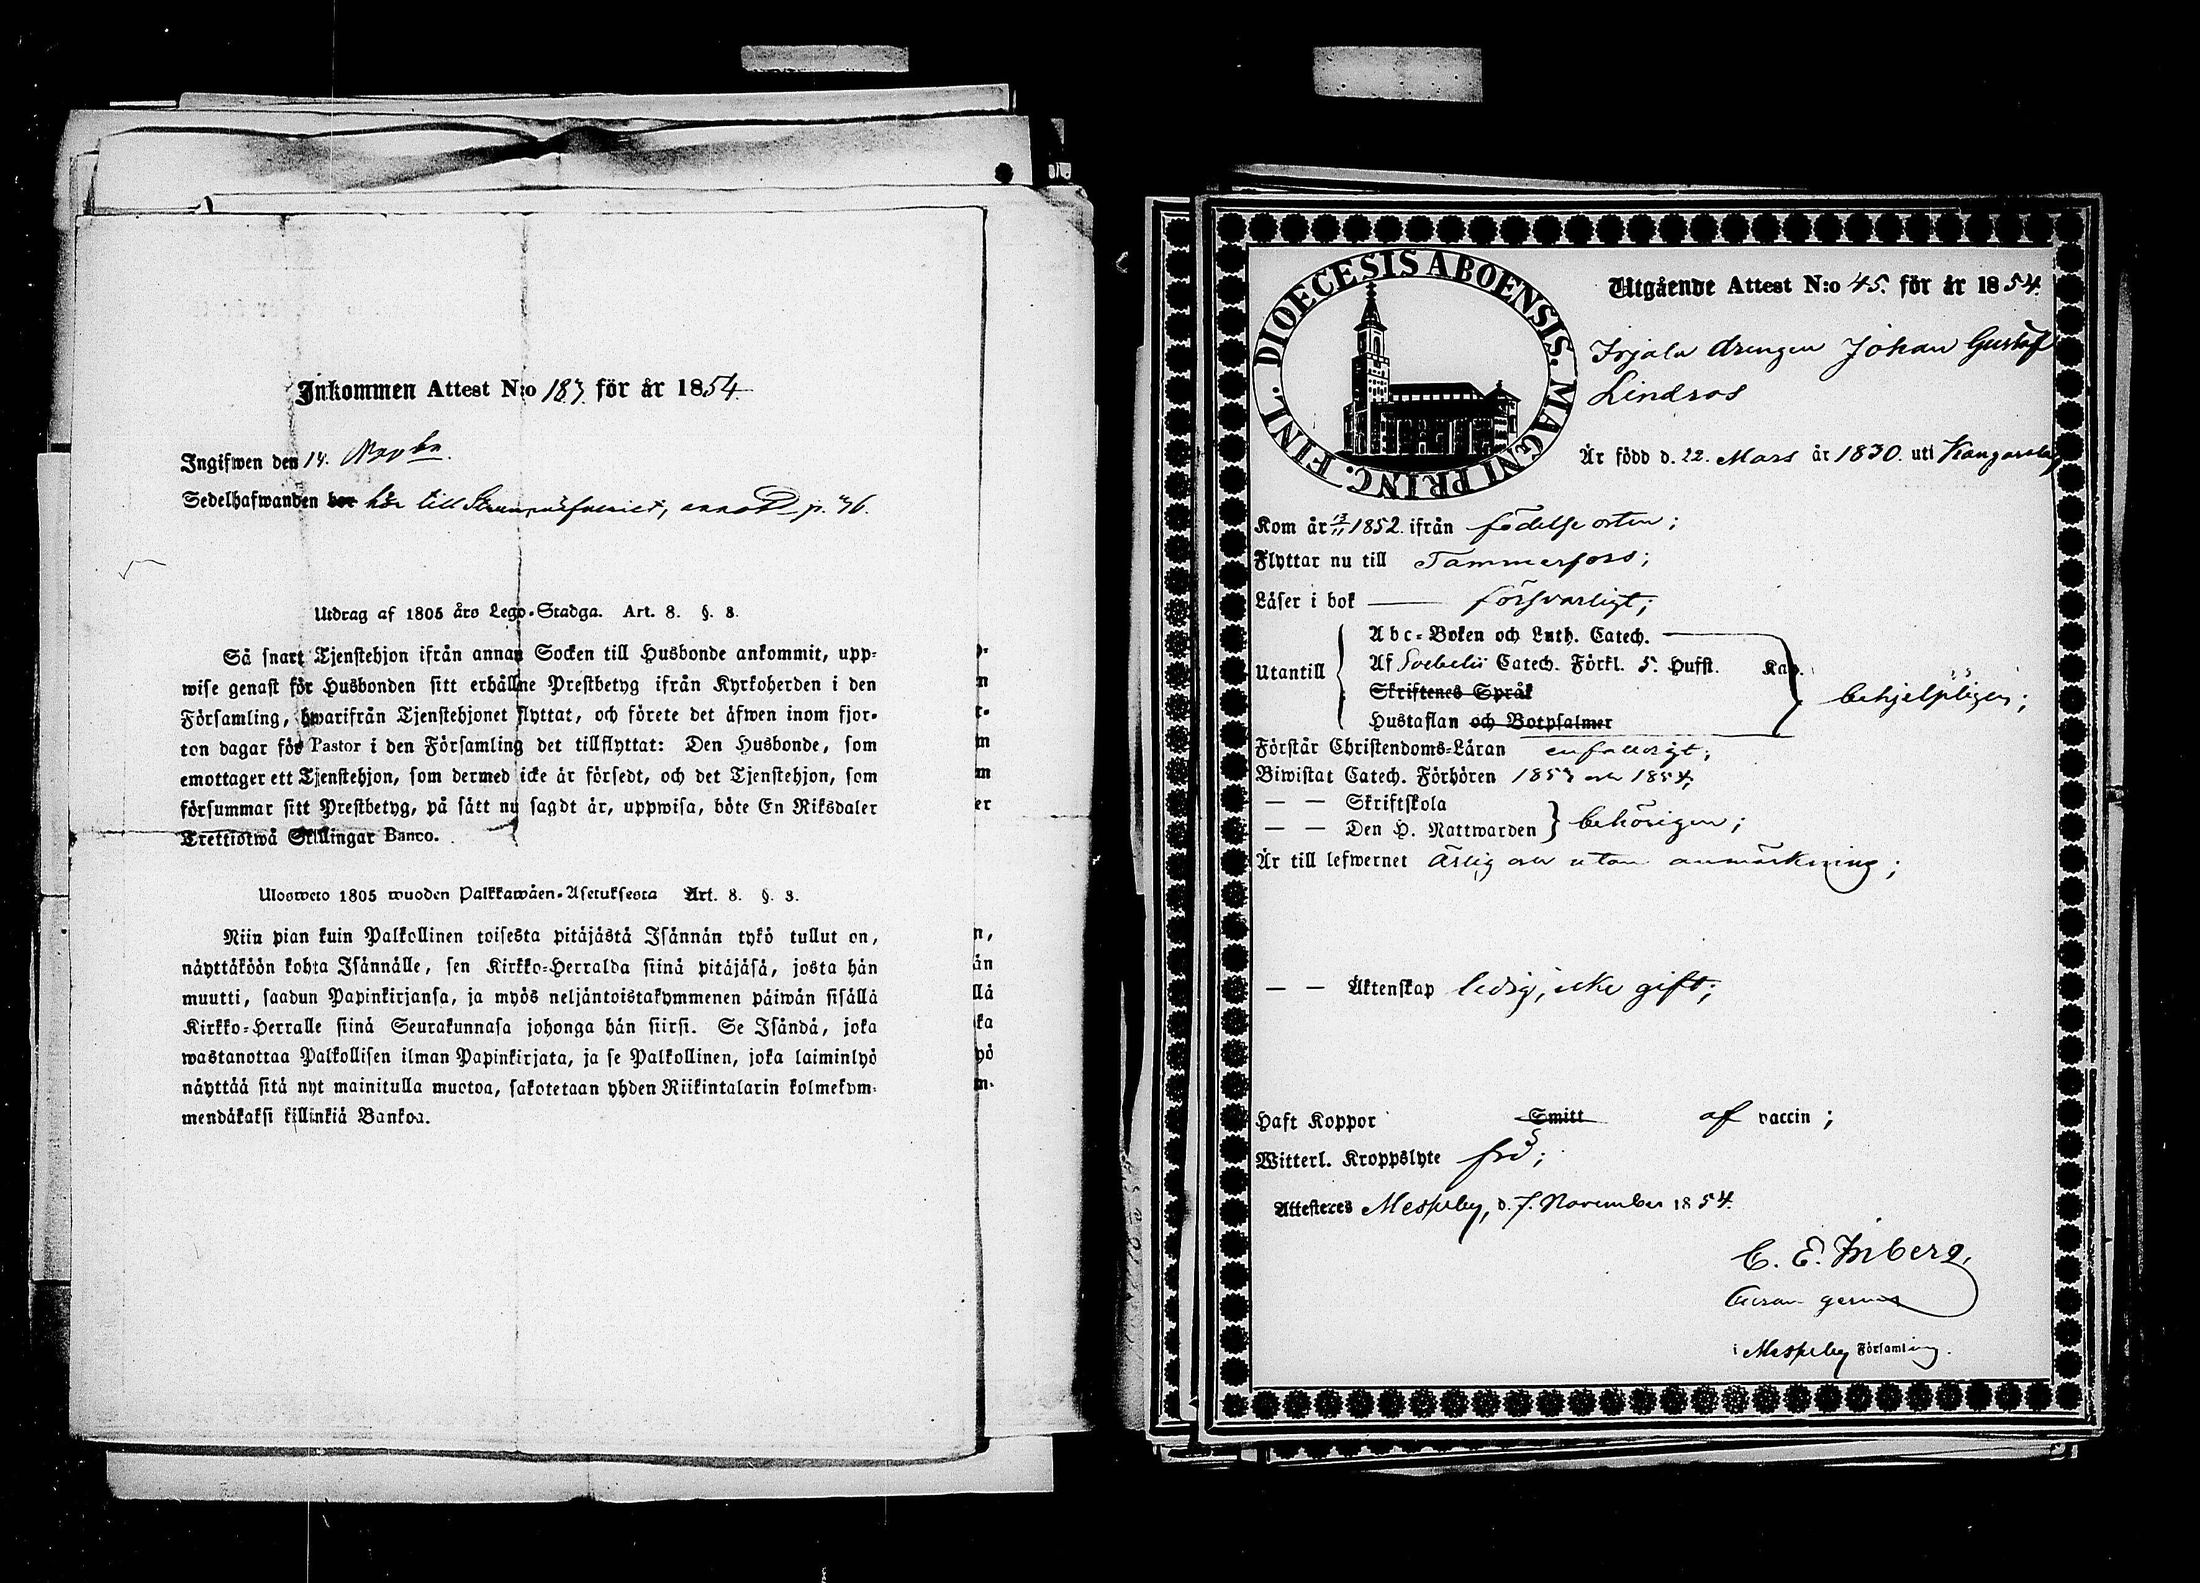 Inkommen Attest N:o 183 för år 1854
Ingifwen den 14. Novbr.
Sedelhafwanden bor hör till p. 46.
Utdrag af 1805 års Lego-Stadga. Art. 8. §. 8.
Så snart Tjenstehjon ifrån annan Socken till Husbonde ankommit, upp-
wise genast för Husbonden sitt erhållne Prestbetyg ifrån Kyrkoherden i den
Församling, hwarifrån Tjenstehjonet flyttat, och förete det äfwen inom fjor-
ton dagar för Pastor i den Församling det tillflyttat: Den Husbonde, som
emottager ett Tjenstehjon, som dermed icke är försedt, och det Tjenstehjon, som
försummar sitt Prestbetyg, på sätt nu sagdt är, uppwisa, böte En Riksdaler
Trettiotwå Skillingar Banco.
Ulosweto 1805 wuoden Palkkawäen-Asetuksesta Art. 8. §. 3.
Niin pian kuin Palkollinen toisesta pitäjästä Isännän tykö tullut on,
näyttäköön kohta Isännälle, sen Kirkko-Herralda siinä pitäjäsä, josta hän
muutti, saadun Papinkirjansa, ja myös neljäntoistakymmenen päiwän sisällä
Kirkko-Herralle siinä Seurakunnasa johonga hän siirsi. Se Isändä, joka
wastanottaa Palkollisen ilman Papinkirjata, ja se Palkollinen, joka laiminlyö
näyttää sitä nyt mainitulla muotoa, sakotetaan yhden Riikintalarin kolmekym-
mendäkaksi killinkiä Bankoa.
DIOECESIS ABOENSIS. MAGNI PRINC. FINL.
Utgående Attest N:o 45. för år 1854.
Irjala drengen Johan Gustaf
Lindros
Är född d. 22. Mars år 1830. uti Kangasala
Kom år 13/11 1852. ifrån födelse orten;
Flyttar nu till Tammerfors;
Läser i bok försvarligt;
Utantill
Abc-Boken och Luth. Catech.
Af Svebelii Catech. Förkl. 5. Hufst. Kap.
Skriftenes Språk
Hustaflan och Botpsalmer
behjelpligen;
Förstår Christendoms-Läran enfalldigt;
Biwistat Catech. Förhören 1853 och 1854;
— — Skriftskola
— — Den H. Nattwarden
behörigen;
Är till lefwernet ärlig och utan anmärkning;
— — Äktenskap ledig, icke gift;
Haft Koppor Smitt af vaccin;
Witterl. Kroppslyte fri;
Attesteras Messuby, d. 7. November 1854.
C. E.
i Messuby Församling.